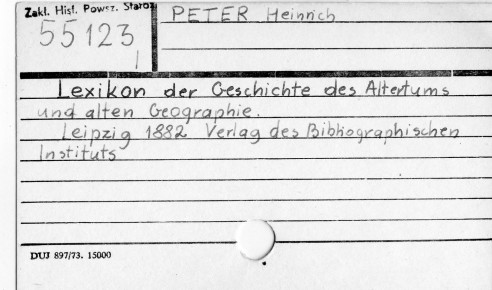 Zakł. Hist. Powsz. Staroż
55123
1
PETER Heinrich
Lexikon der Geschichte des Altertums
und alten Geographie.
Leipzig 1882 Verlag des Bibliographischen
Instituts
DUJ 897/73. 15000